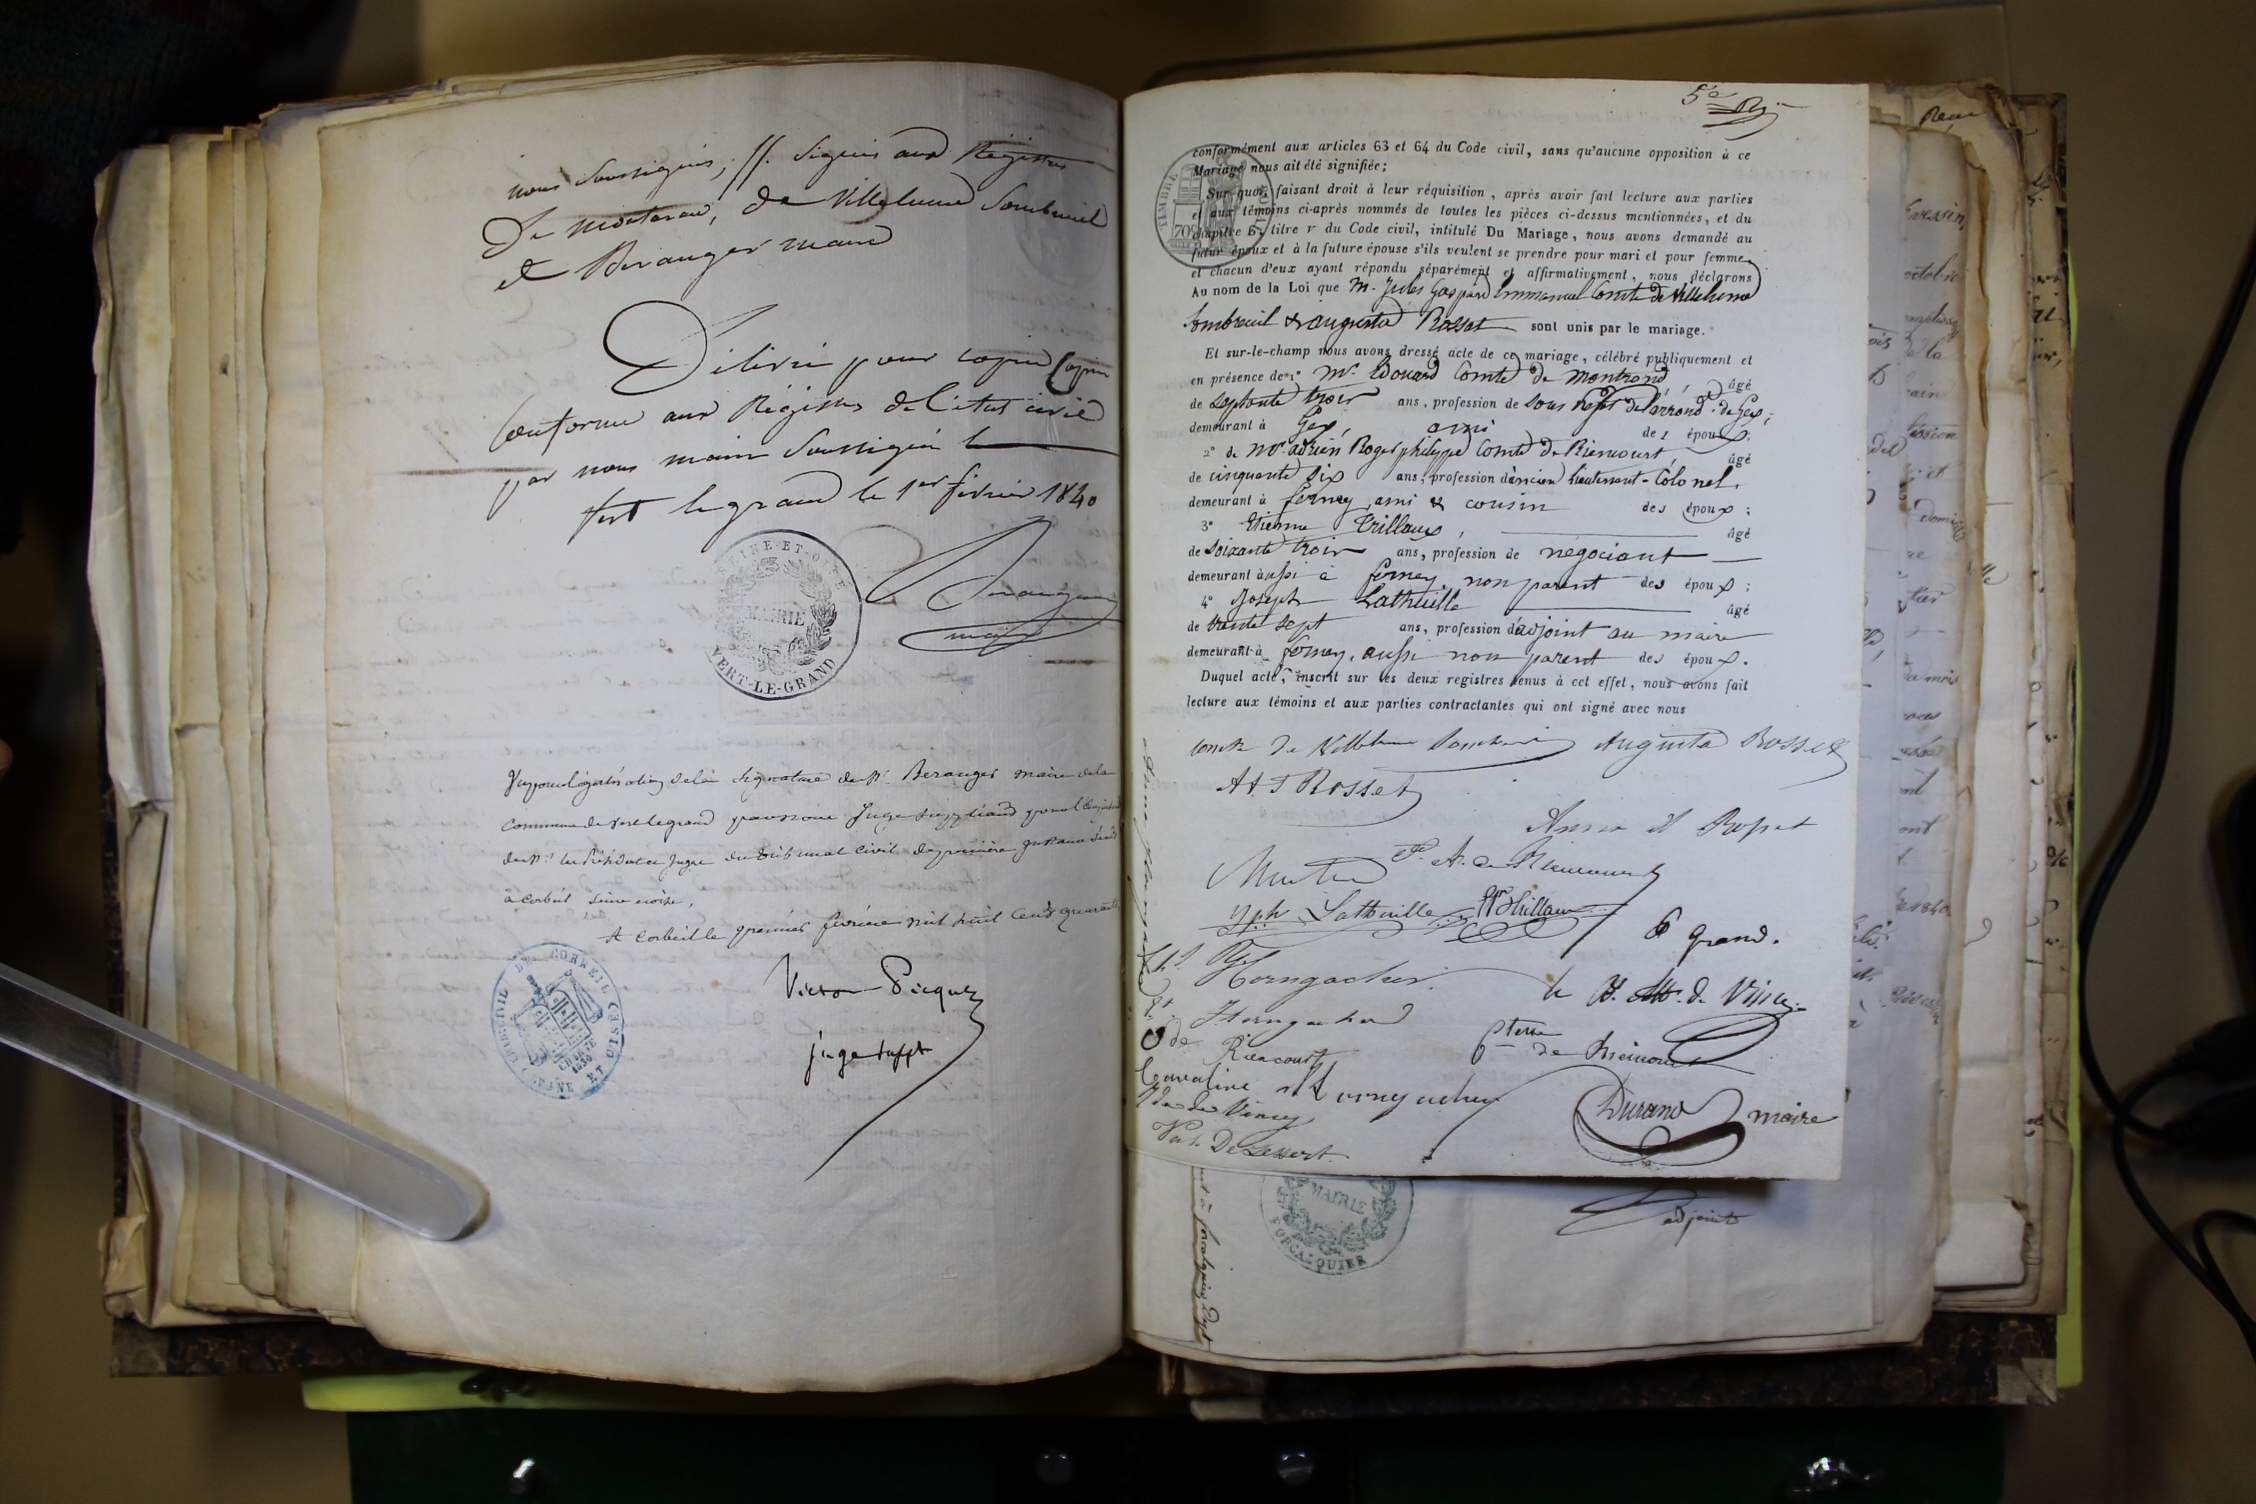 nous soussignés, //. Signé aux Régistres
De Montarau, de Villelume Sombreuil
et Béranger maire
Délivré pour copie
Conforme aux Régistres de l'état civil
par nous maire soussigné
Vert le grand le 1er février 1840
Béranger
maire
SEINE-ET-OISE
MAIRIE
VERT-LE-GRAND
Vu pour légalisation de la signature de Mr. Beranger maire de la
commune de Vert le grand par nous Juge suppléant pour l'empêchement
de Mrs. les Président et Juges du tribunal civil de première instance séant
à Corbeil Seine et oise,
A Corbeil le premier février mil huit cent quarante
Victor Picquez
juge suppt
DE CORBEIL
SEINE ET
5e
conformément aux articles 63 et 64 du Code civil, sans qu'aucune opposition à ce
Mariage nous ait été signifiée;
Sur quoi, faisant droit à leur réquisition, après avoir fait lecture aux parties
et aux témoins ci-après nommés de toutes les pièces ci-dessus mentionnées, et du
chapitre 6, titre v du Code civil, intitulé Du Mariage, nous avons demandé au
futur époux et à la future épouse s'ils veulent se prendre pour mari et pour femme,
et chacun d'eux ayant répondu séparément et affirmativement, nous déclarons
Au nom de la Loi que M. Jules Gaspard Emmanuel Comte de Villelume
Sombreuil & augusta Rosset sont unis par le mariage.
Et sur-le-champ nous avons dressé acte de ce mariage, célébré publiquement et
en présence de 1° Mr. Edouard Comte de Montrond, âgé
de Septante trois ans, profession de sous Préfet de l'arrond. de Gex;
demeurant à Gex, ami des époux;
2° de Mr. adrien Roger philippe Comte de Riencourt, âgé
de cinquante six ans, profession d'ancien lieutenant-Colonel,
demeurant à ferney, ami & cousin des époux;
3° Etienne Trillaux, âgé
de soixante trois ans, profession de négociant
demeurant aussi à ferney, non parent des époux;
4° Joseph Lathuille âgé
de trente sept ans, profession d'adjoint au maire
demeurant à ferney, aussi non parent des époux.
Duquel acte, inscrit sur les deux registres tenus à cet effet, nous avons fait
lecture aux témoins et aux parties contractantes qui ont signé avec nous
comte de Villelume Sombreuil Augusta Rosset
Rosset
Anna Rosset
A. de Riencourt
Jph Lathuille Trillaux
Grand.
Horngacher.
de Vincy
Horngacher
Ctesse de Riencourt
de Riencourt
Caroline Horngacher
de Vincy
Durand maire
DeLessert.
MAIRIE
FORCALQUIER
adjoint